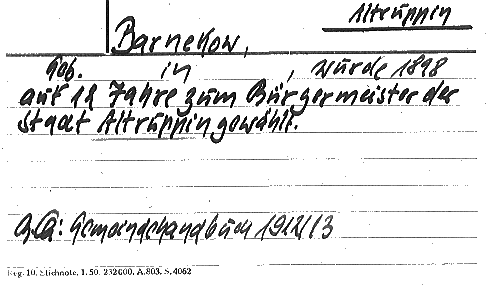 Altruppin
Barnekow,
geb. in , wurde 1898
auf 12 Jahre zum Bürgermeister der
Stadt Altruppin gewählt.
Qu: Gemeindehandbuch 1912/13
Reg. 10. Stichnote. 1. 50. 232000. A.803. S.4062